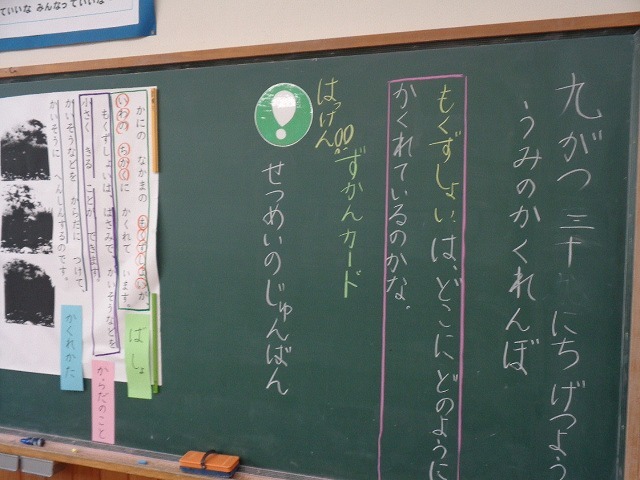 九がつ三十にちげつよう
うみのかくれんぼ
もくずしょいは、どこにどのように
かくれているのかな。
はっけん
○○ずかんカード
せつめいのじゅんばん
かにの なかまの もくずしょいが
いわの ちかくに かくれて います。
もくずしょいは はさみで かいそうなどを
小さく きる ことが できます。
かいそうなどを からだに つけて、
かいそうに へんしんするのです。
ばしょ
からだのこと
かくれかた
ていいな みんなっていいな